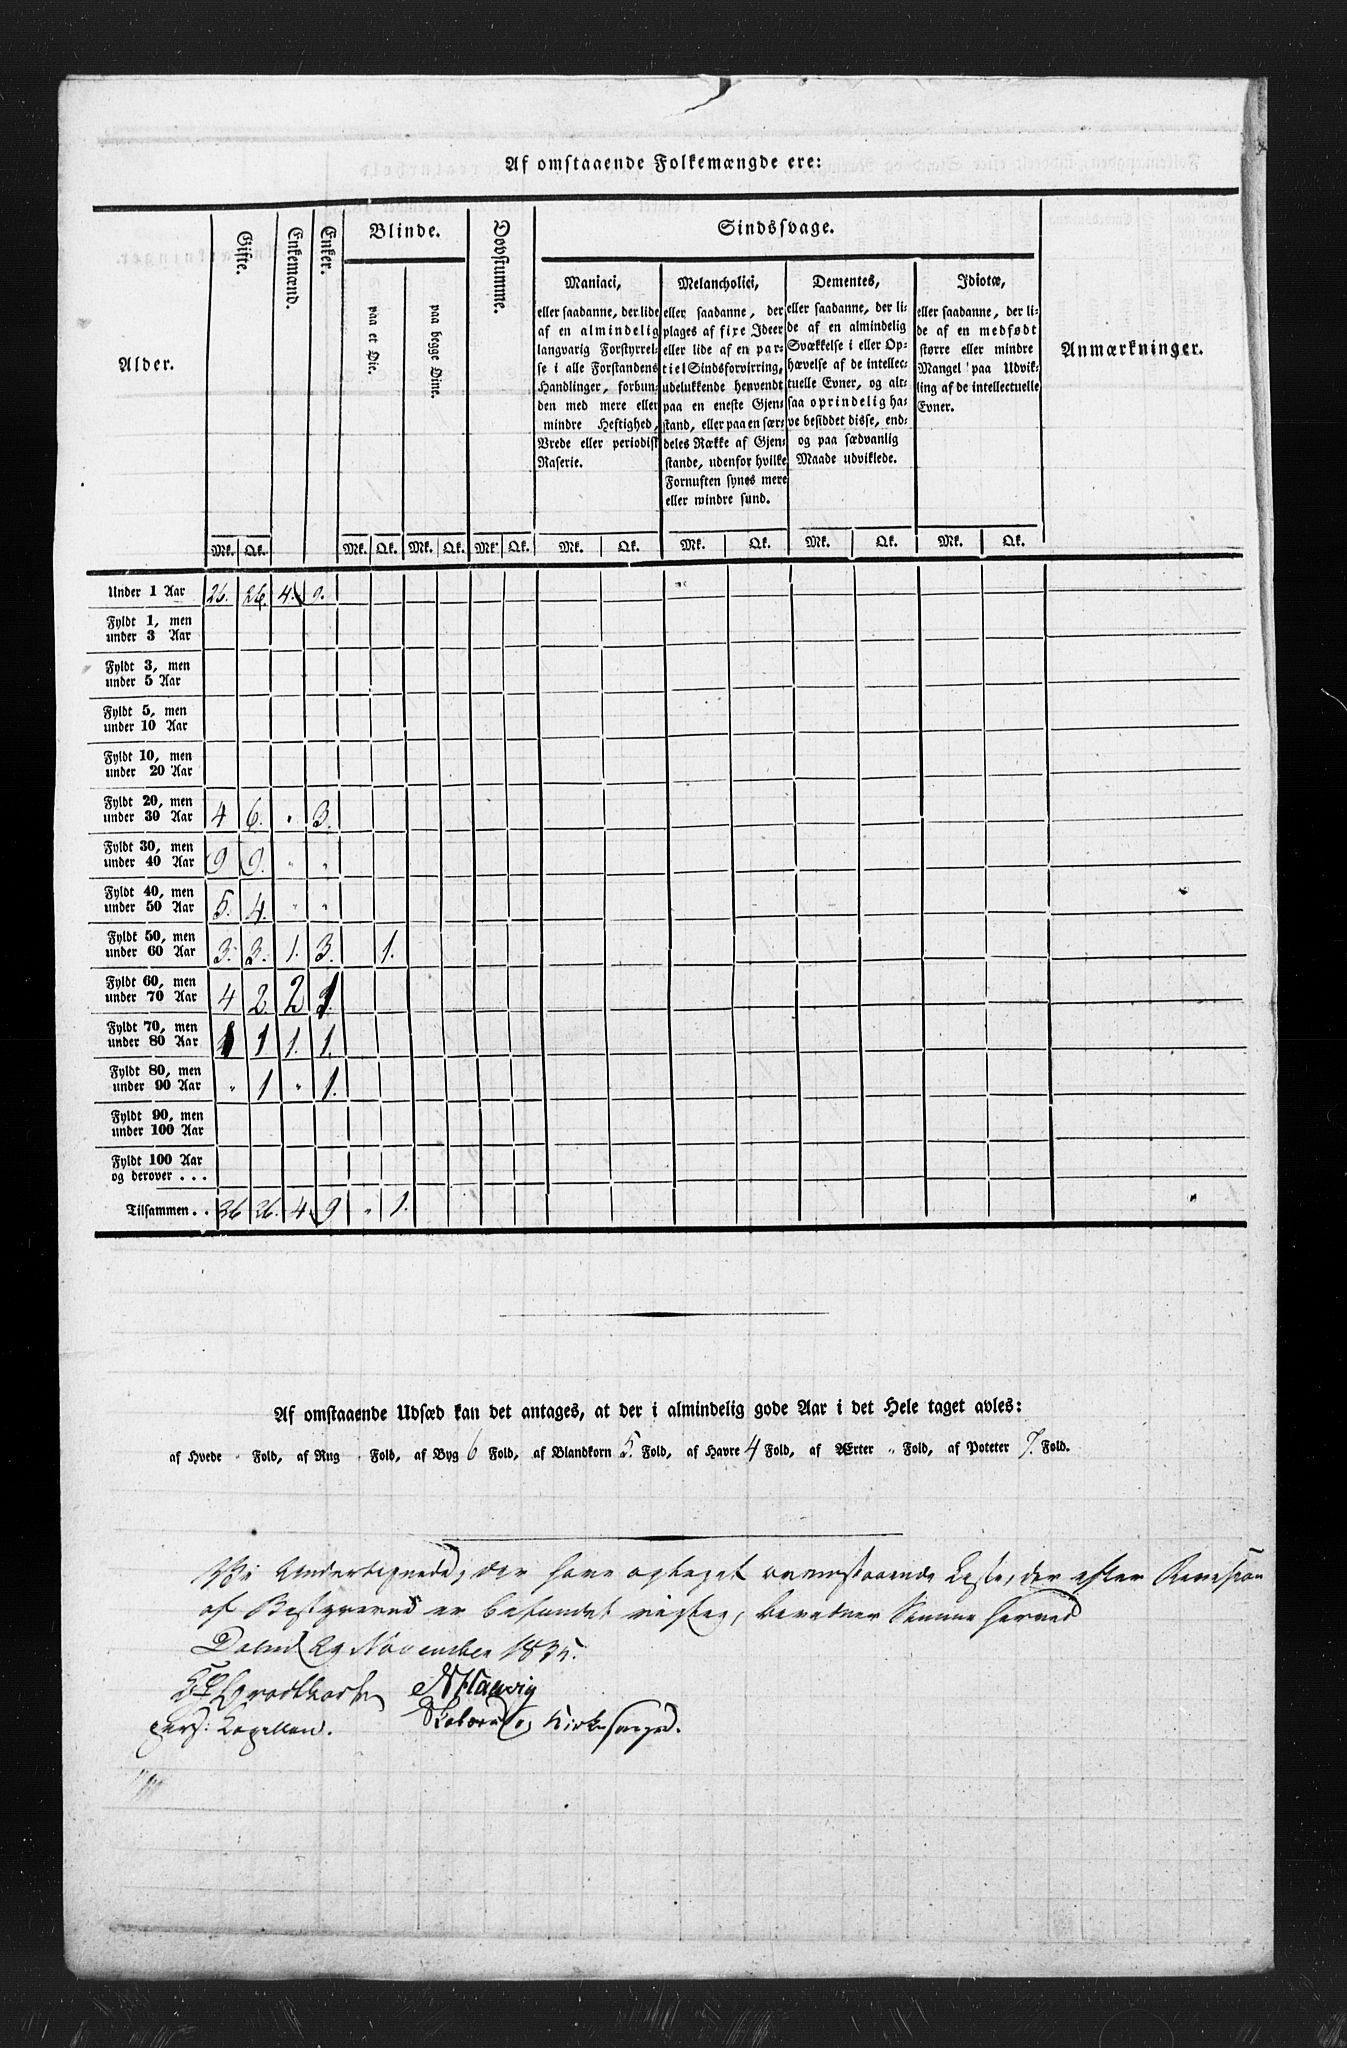 Af omstaaende Folkemængde ere:
Alder.
Gifte.
Enkemænd.
Enker.
Blinde.
paa et Øie.
paa begge Øine.
Døvstumme.
Sindssvage.
Maniaci,
eller saadanne, der lide
af en almindelig
langvarig Forstyrrel-
se i alle Forstandens
Handlinger, forbun-
den med mere eller
mindre Heftighed,
Vrede eller periodisk
Raserie.
Melancholici,
eller saadanne, der
plages af fixe Ideer
eller lide af en par-
tiel Sindsforvirring,
udelukkende henvendt
paa en eneste Gjen-
stand, eller paa en sær-
deles Række af Gjen-
stande, udenfor hvilke
Fornuften synes mere
eller mindre sund.
Dementes,
eller saadanne, der li-
de af en almindelig
Svækkelse i eller Op-
hævelse af de intellec-
tuelle Evner, og alt-
saa oprindelig ha-
ve besiddet disse, end-
og paa sædvanlig
Maade udviklede.
Idiotæ,
eller saadanne, der li-
de af en medfødt
større eller mindre
Mangel paa Udvik-
ling af de intellectuelle
Evner.
Anmærkninger.
Mk. Qk. Mk. Qk. Mk. Qk. Mk. Qk. Mk. Qk. Mk. Qk. Mk. Qk. Mk. Qk.
Under 1 Aar 26. 26. 4. 9.
Fyldt 1, men
under 3 Aar
Fyldt 3, men
under 5 Aar
Fyldt 5, men
under 10 Aar
Fyldt 10, men
under 20 Aar
Fyldt 20, men
under 30 Aar 4 6. " 3.
Fyldt 30, men
under 40 Aar 9 9. " "
Fyldt 40, men
under 50 Aar 5. 4. " "
Fyldt 50, men
under 60 Aar 3. 3. 1. 3. 1.
Fyldt 60, men
under 70 Aar 4 2. 2 1.
Fyldt 70, men
under 80 Aar 1 1 1. 1.
Fyldt 80, men
under 90 Aar " 1 " 1.
Fyldt 90, men
under 100 Aar
Fyldt 100 Aar
og derover . . .
Tilsammen . . 26 26. 4. 9 " 1.
Af omstaaende Udsæd kan det antages, at der i almindelig gode Aar i det Hele taget avles:
af Hvede " Fold, af Rug " Fold, af Byg 6 Fold, af Blandkorn 5. Fold, af Havre 4 Fold, af Ærter " Fold, af Poteter 7. Fold.
Vi Undertegnede, der have optaget omstaaende Liste, der efter Revision
af Bestyreren er befundet rigtig, bevidner Samme herved
29 November 1835.
pers: Kapellan. og Kirkesanger.